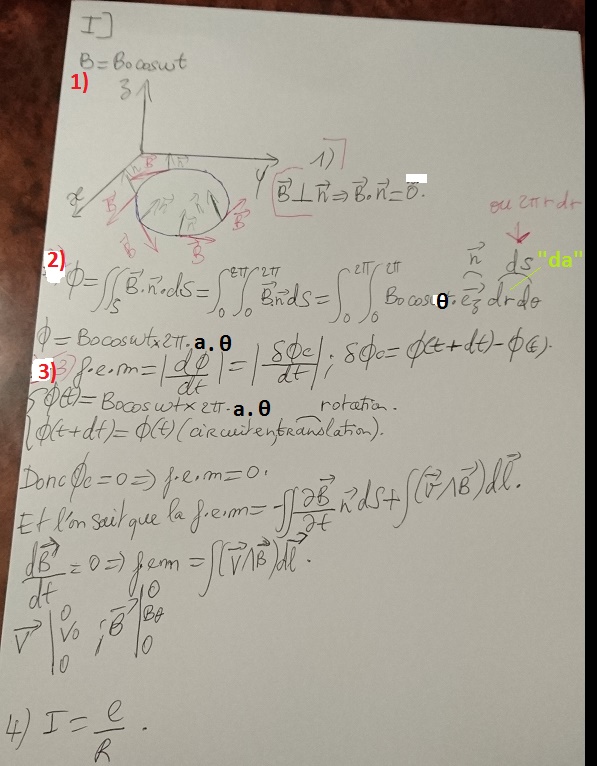 I]
B = B₀cosωt
1)
z
y
x
B⃗ n⃗
B⃗ n⃗ n⃗ B⃗
B⃗ n⃗ B⃗
1)
B⃗ ⊥ n⃗ ⇒ B⃗. n⃗ = 0⃗.
ou 2πrdr
2) ϕ = ∬_S B⃗. n⃗. ds = ∫₀^2π ∫₀^2π B⃗.n⃗ ds = ∫₀^2π ∫₀^2π B₀cosωθ. e⃗z dr dθ
n⃗ ds "da"
ϕ = B₀cosωt x 2π. a.θ
3) f.e.m = |dϕ/dt| = |δϕc/dt| ; δϕc = ϕ(t+dt) - ϕ(t).
ϕ(t) = B₀cosωt x 2π. a.θ rotation.
ϕ(t+dt) = ϕ(t) (circuit en translation).
Donc ϕc = 0 ⇒ f.e.m = 0.
Et l'on sait que la f.e.m = -∬ ∂B⃗/∂t n⃗ ds + ∫(v⃗ ∧ B⃗) dl⃗.
dB⃗/dt = 0 ⇒ fem = ∫(v⃗ ∧ B⃗) dl⃗.
V⃗ | 0 V₀ 0 ; B⃗ | 0 Bθ 0
4) I = e/R .